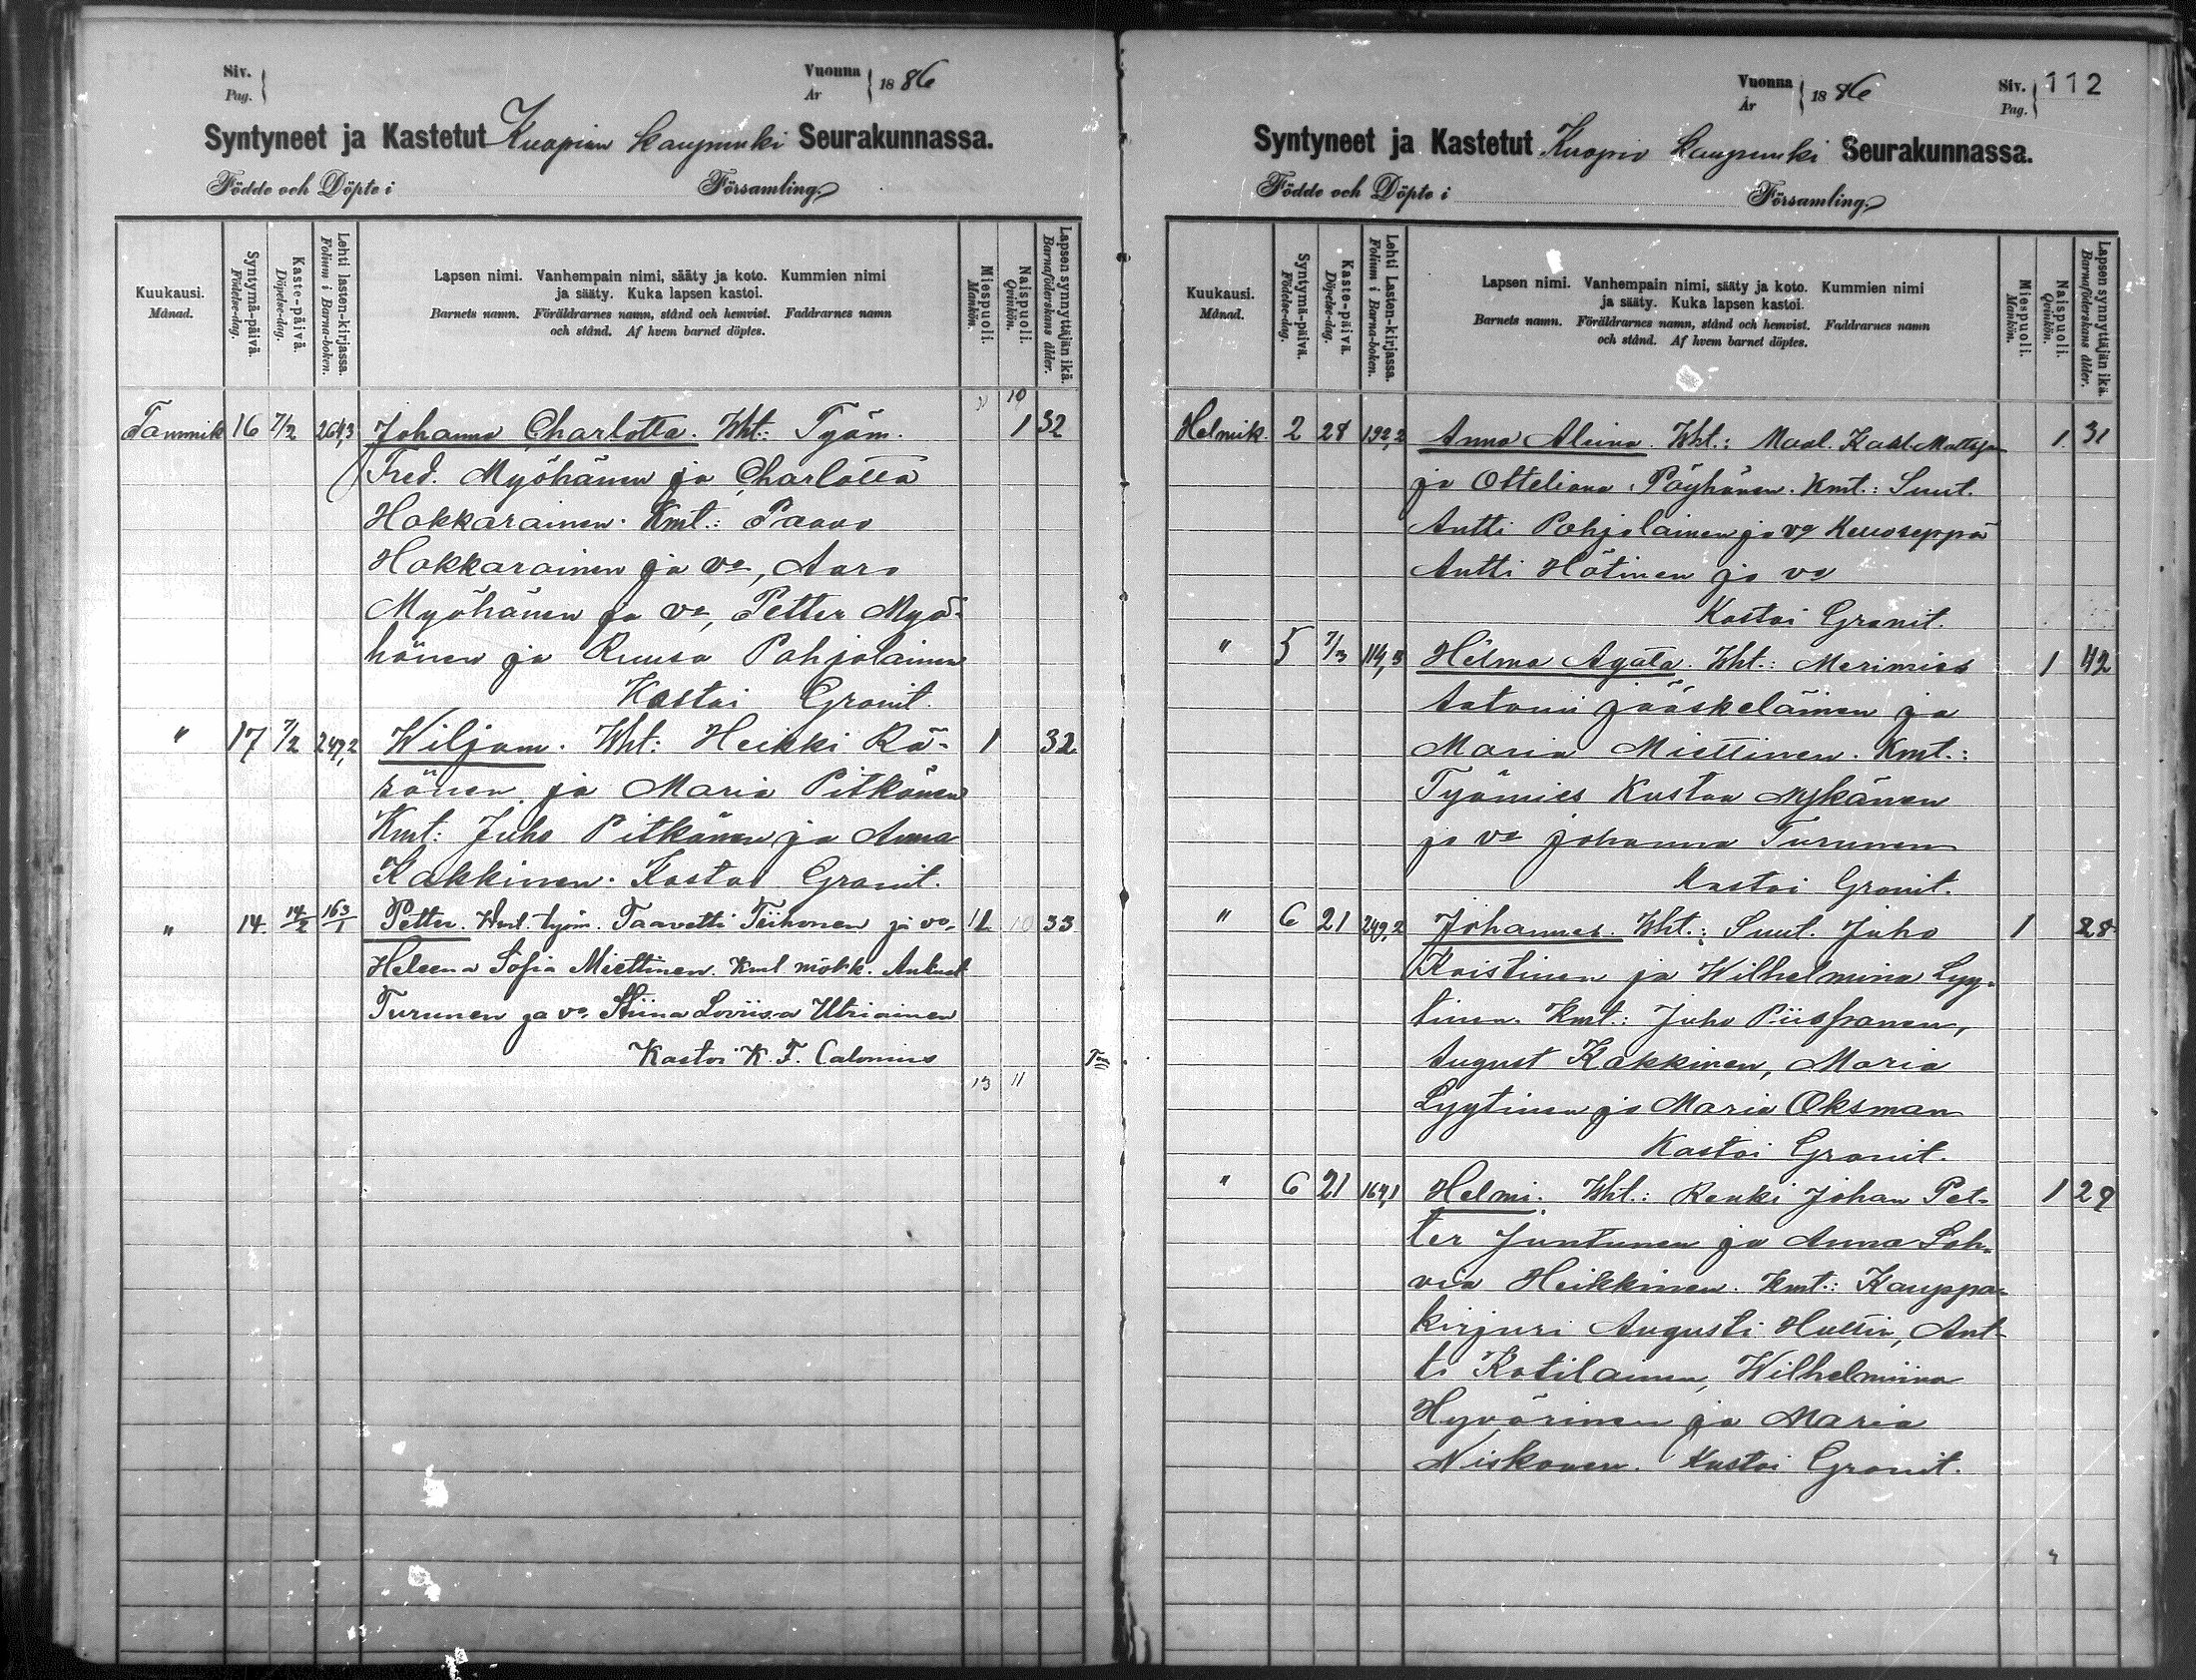 Siv.
Pag.
Vuonna
År
1886
Syntyneet ja Kastetut Kuopion kaupunki Seurakunnassa.
Födde och Döpte i Församling.
Kuukausi.
Månad.
Syntymä-päivä.
Födelse-dag.
Kaste-päivä.
Döpelse-dag.
Lehti lasten-kirjassa.
Folium i Barna-boken.
Lapsen nimi. Vanhempain nimi, sääty ja koto. Kummien nimi
ja sääty. Kuka lapsen kastoi.
Barnets namn. Föräldrarnes namn, stånd och hemvist. Faddrarnes namn
och stånd. Af hvem barnet döptes.
Miespuoli.
Mankön.
Naispuoli.
Qvinkön.
Lapsen synnyttäjän ikä.
Barnaföderskans ålder.
10
Tammik 16 7/2 264,3 Johanna Charlotta. Wht.: Työm. 1 32
Fred. Myöhänen ja Charlotta
Hakkarainen. Kmt.: Paavo
Hakkarainen ja vo, Aaro
Myöhänen ja vo, Petter Myö-
hänen ja Ruusa Pohjolainen
Kastoi Granit.
" 17 7/2 249,2 Wiljam. Wht: Heikki Rä- 1 32
sänen ja Maria Pitkänen
Kmt: Juho Pitkänen ja Anna
Kakkinen. Kastoi Granit.
" 14 14/2 163/1 Petter. Wmt. työm. Taavetti Tiihonen ja vo. 1 10 33
Heleena Sofia Miettinen. Kmt mökk. Aukust
Turunen ja vo. Stiina Loviisa Utriainen
Kastoi K. F. Calonius
13 11
Vuonna
År
1886
Siv.
Pag.
112
Syntyneet ja Kastetut Kuopio kaupunki Seurakunnassa.
Födde och Döpte i Församling.
Kuukausi.
Månad.
Syntymä-päivä.
Födelse-dag.
Kaste-päivä.
Döpelse-dag.
Lehti Lasten-kirjassa.
Folium i Barna-boken.
Lapsen nimi. Vanhempain nimi, sääty ja koto. Kummien nimi
ja sääty. Kuka lapsen kastoi.
Barnets namn. Föräldrarnes namn, stånd och hemvist. Faddrarnes namn
och stånd. Af hvem barnet döptes.
Miespuoli.
Mankön.
Naispuoli.
Qvinkön.
Lapsen synnyttäjän ikä.
Barnaföderskans ålder.
Helmik. 2 28 192,2 Anna Aliina. Wht.: Maal. Kaal 1 31
ja Otteliana Pöyhönen. Kmt.: Suut.
Antti Pohjolainen ja vo Kelloseppä
Antti Hätinen ja vo
Kastoi Granit.
" 5 7/3 114,3 Helma Agata. Wht.: Merimies 1 42
Antoni Jääskeläinen ja
Maria Miettinen. Kmt.:
Työmies Kustaa Nykänen
ja vo Johanna Turunen
Kastoi Granit.
" 6 21 249,2 Johannes. Wht.: Suut. Juho 1 28
Koistinen ja Wilhelmina Lyy-
tinen. Kmt.: Juho Piispanen,
August Kakkinen, Maria
Lyytinen ja Maria Oksman
Kastoi Granit.
" 6 21 164,1 Helmi. Wht.: Renki Johan Pet- 1 29
ter Juntunen ja Anna Soh-
via Heikkinen. Kmt.: Kauppa-
kirjuri Augusti Huttin, Ant-
ti Kotilainen, Wilhelmiina
Hyvärinen ja Maria
Niskanen. Kastoi Granit.